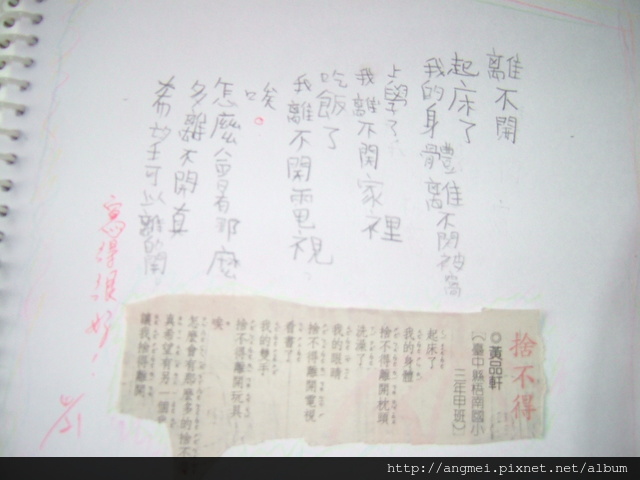 離不開
起床了
我的身體離不開被窩
上學了
我離不開家裡
吃飯了
我離不開電視
唉。
怎麼會有那麼
多離不開真
希望可以離的開。
寫得很好！
捨不得
◎黃品軒
（臺中縣梧南國小
二年申班）
起床了
我的身體
捨不得離開枕頭
洗澡了
我的眼睛
捨不得離開電視
看書了
我的雙手
捨不得離開玩具
唉
怎麼會有那麼多的捨不
真希望有另一個
讓我捨得離開
http://angmei.pixnet.net/album